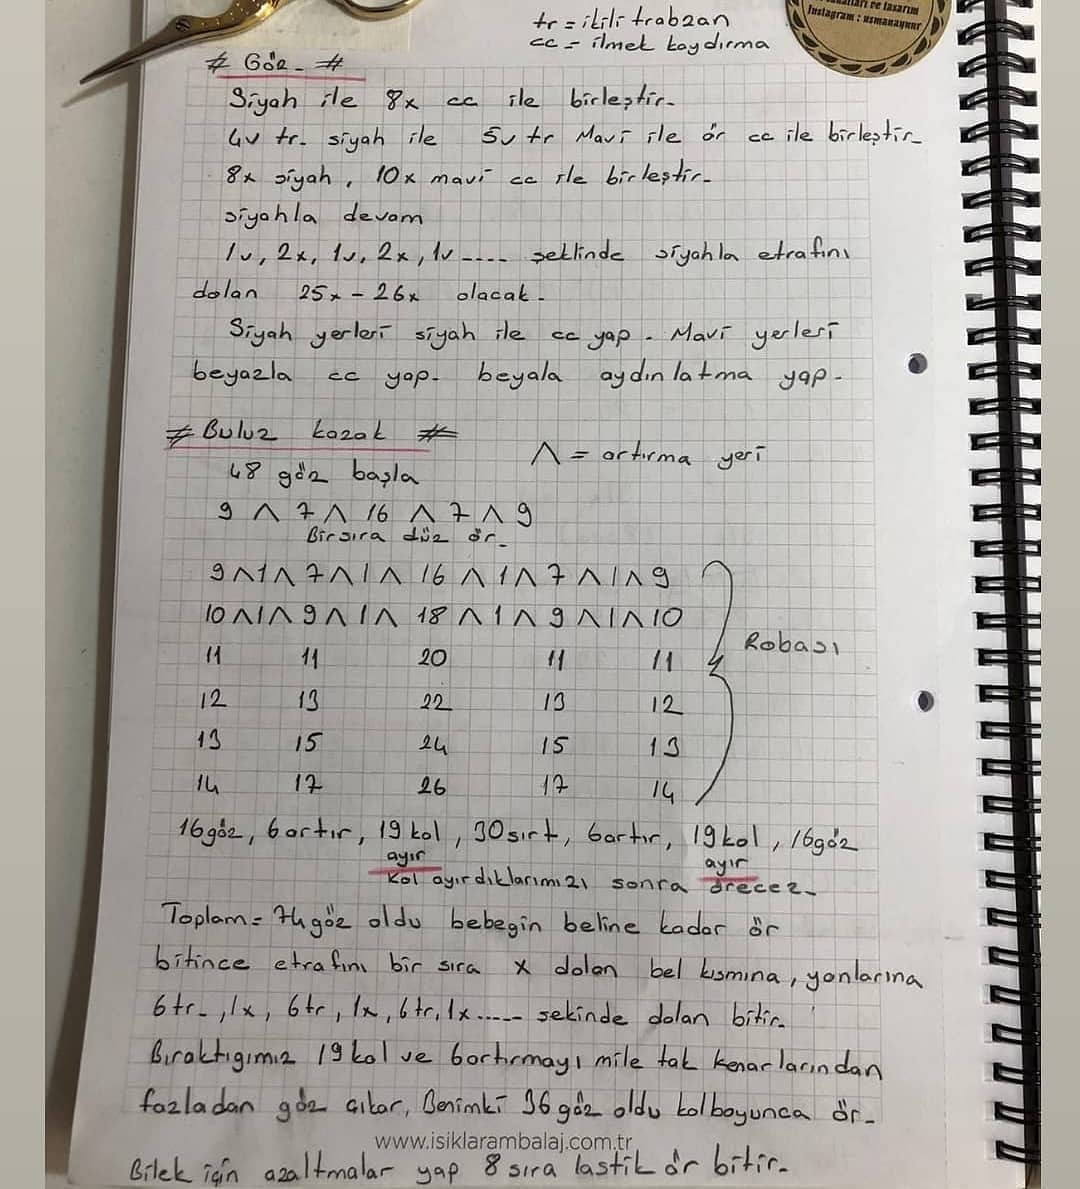 tr = ikili trabzan
cc = ilmek kaydırma
ve tasarım
Instagram : usmanaynur
# Göz - #
Siyah ile 8x cc ile birleştir-
4v tr. siyah ile 5v tr Mavi ile ör cc ile birleştir-
8x siyah, 10x mavi cc ile birleştir-
siyahla devam
1v, 2x, 1v, 2x, 1v ---- şeklinde siyahla etrafını
dolan 25x - 26x olacak-
Siyah yerleri siyah ile cc yap. Mavi yerleri
beyazla cc yap- beyala aydınlatma yap-
# Buluz kazak #
Λ = artırma yeri
48 göz başla
9 Λ 7 Λ 16 Λ 7 Λ 9
Bir sıra düz ör-
9 Λ 1 Λ 7 Λ 1 Λ 16 Λ 1 Λ 7 Λ 1 Λ 9
10 Λ 1 Λ 9 Λ 1 Λ 18 Λ 1 Λ 9 Λ 1 Λ 10
Robası
11 11 20 11 11
12 13 22 13 12
13 15 24 15 13
14 17 26 17 14
16göz, 6artır, 19kol, 30sırt, 6artır, 19kol, 16göz
ayır ayır
Kol ayırdıklarımızı sonra örecez-
Toplam= 74göz oldu bebegin beline kadar ör
bitince etrafını bir sıra x dolan bel kısmına, yanlarına
6tr-, 1x, 6tr, 1x, 6tr, 1x ----- sekinde dolan bitir.
Bıraktıgımız 19kol ve 6artırmayı mile tak kenarlarından
fazladan göz çıkar, Benimki 36göz oldu kolboyunca ör-
www.isiklarambalaj.com.tr
Bilek için azaltmalar yap 8 sıra lastik ör bitir-